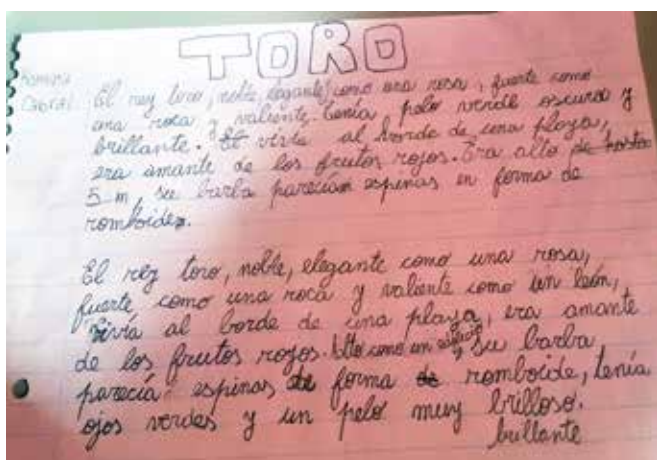 TORO
Romina
Cabral
El rey toro, noble, elegante como una rosa, fuerte como
una roca y valiente. Tenía pelo verde oscuro y
brillante. El vivía al borde de una playa,
era amante de los frutos rojos. Era alto de hasta
5 m, su barba parecían espinas en forma de
romboides.
El rey toro, noble, elegante como una rosa,
fuerte como una roca y valiente como un león,
vivía al borde de una playa, era amante
de los frutos rojos. Alto como un edificio y su barba
parecía espinas de forma de romboide, tenía
ojos verdes y un pelo muy brilloso.
brillante